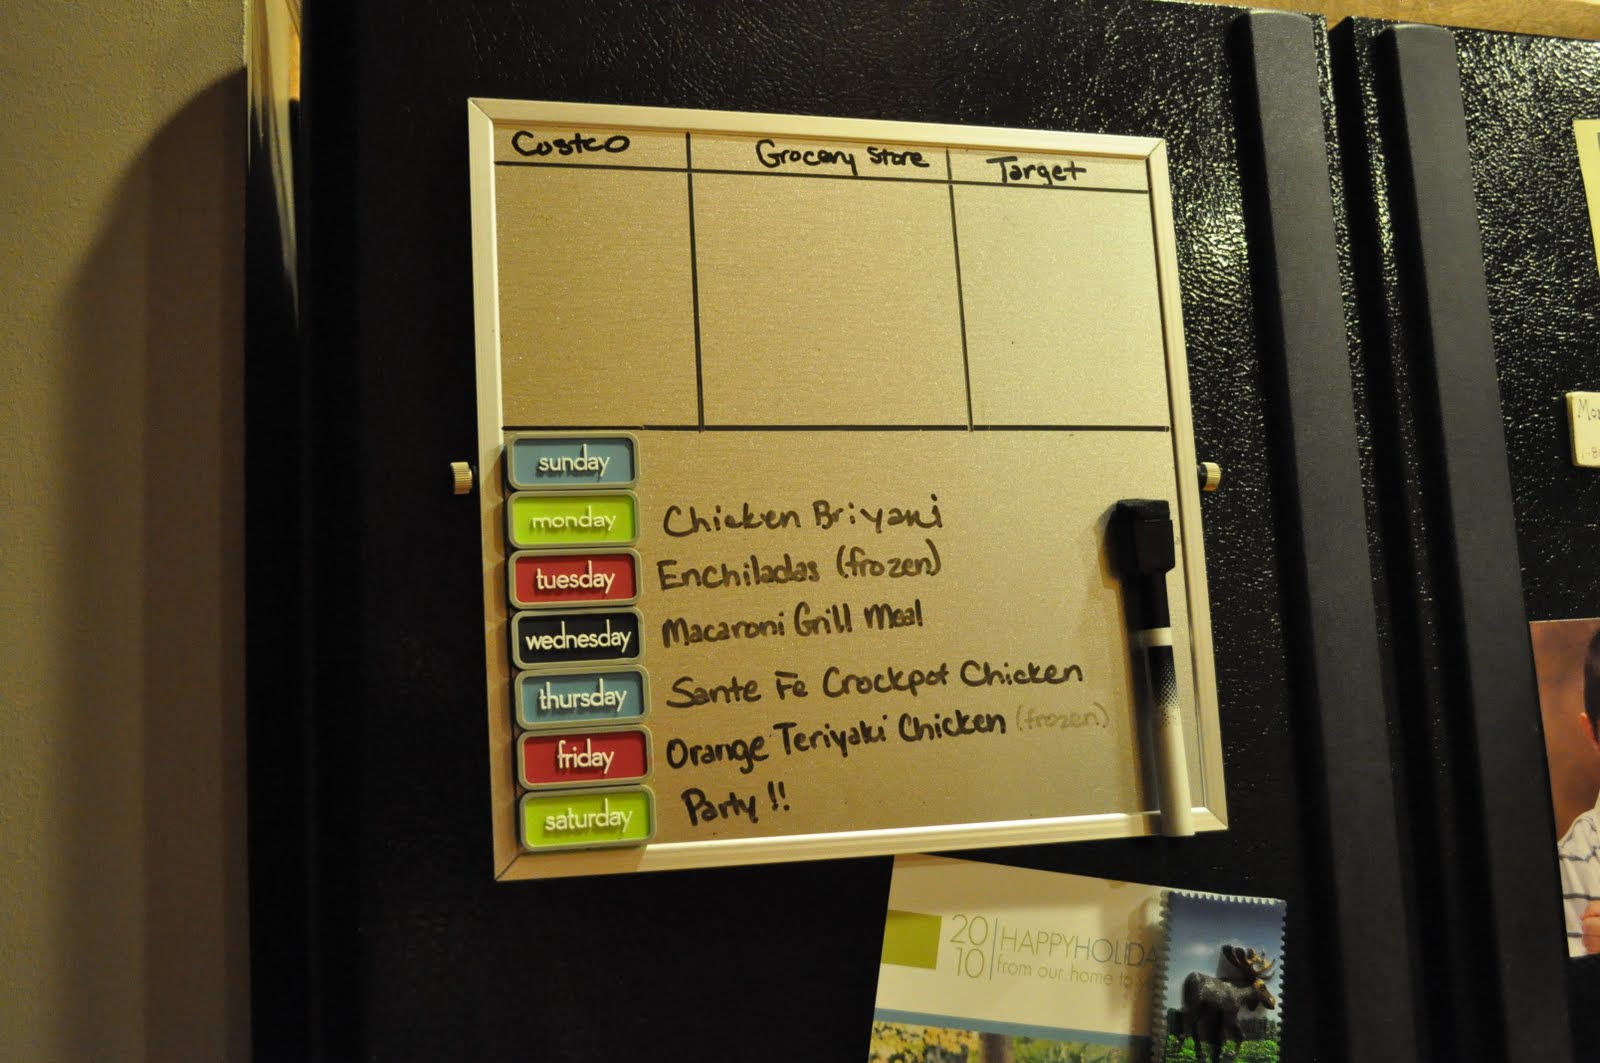 Costco
Grocery Store
Target
sunday
monday Chicken Briyani
tuesday Enchiladas (frozen)
wednesday Macaroni Grill Meal
thursday Sante Fe Crockpot Chicken
friday Orange Teriyaki Chicken (frozen)
saturday Party!!
20
10
HAPPYHOLIDA
from our home to